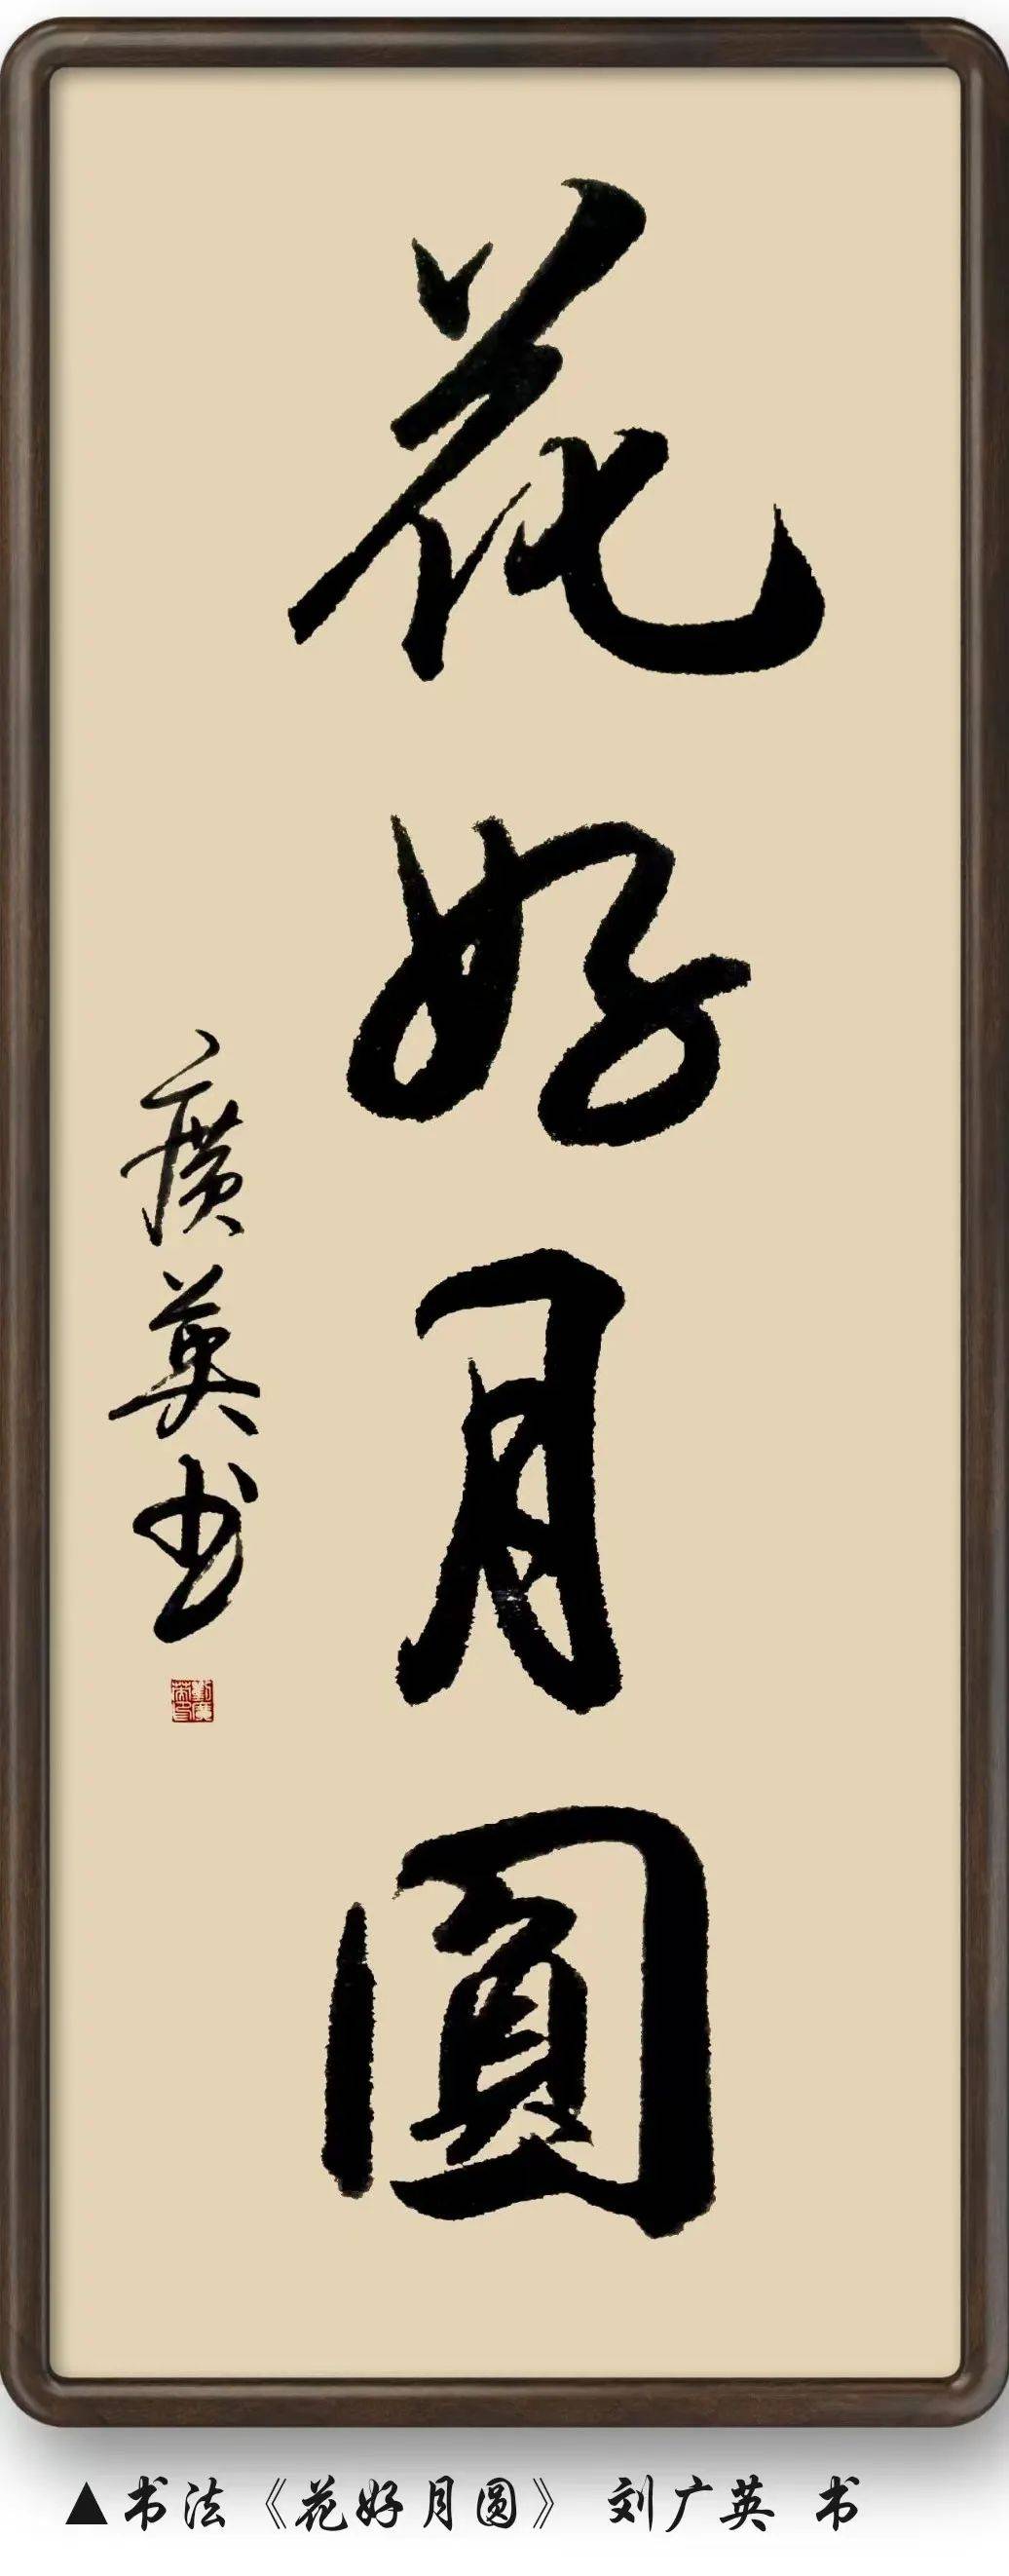 花好月圓
廣英书
▲书法《花好月圆》 刘广英 书